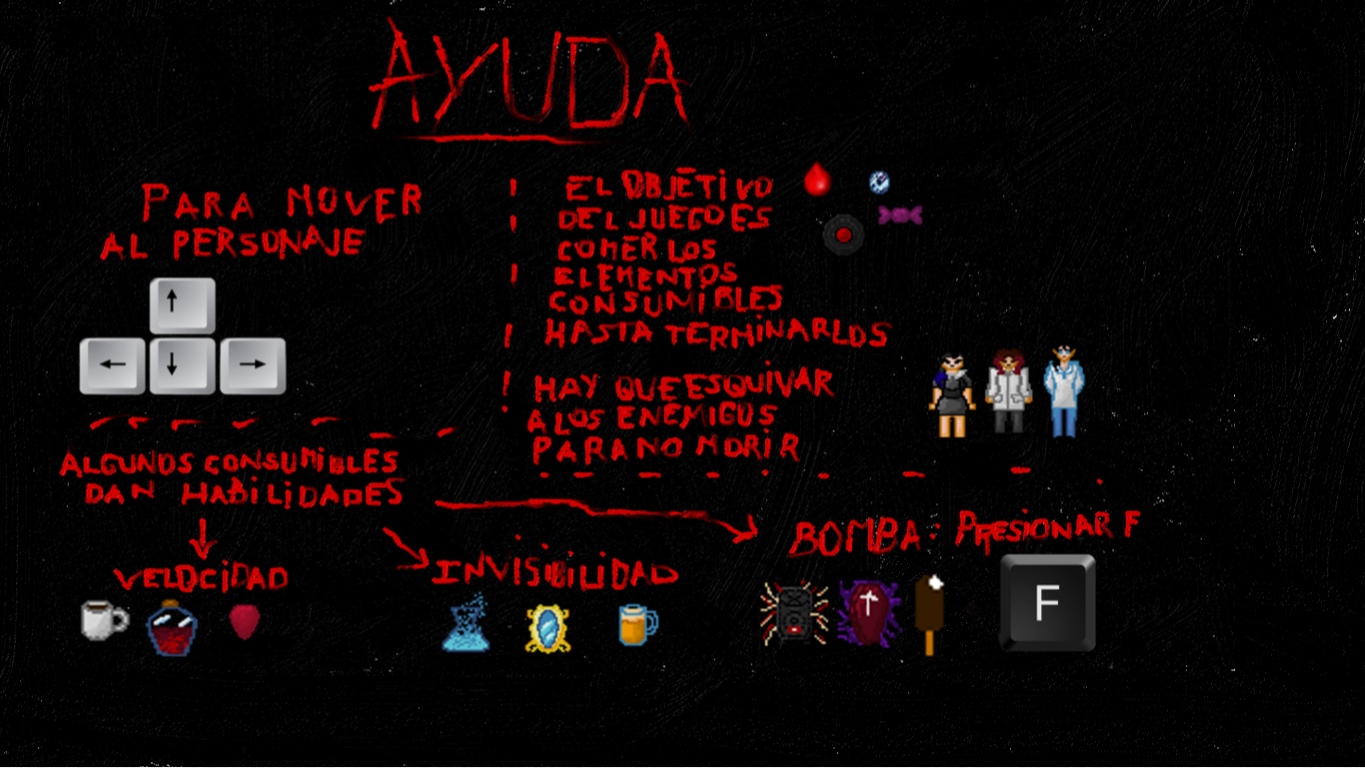 AYUDA
PARA MOVER
AL PERSONAJE
EL OBJETIVO
DEL JUEGO ES
COMER LOS
ELEMENTOS
CONSUMIBLES
HASTA TERMINARLOS
HAY QUE ESQUIVAR
A LOS ENEMIGOS
PARA NO MORIR
ALGUNOS CONSUMIBLES
DAN HABILIDADES
VELOCIDAD
INVISIBILIDAD
BOMBA: PRESIONAR F
F